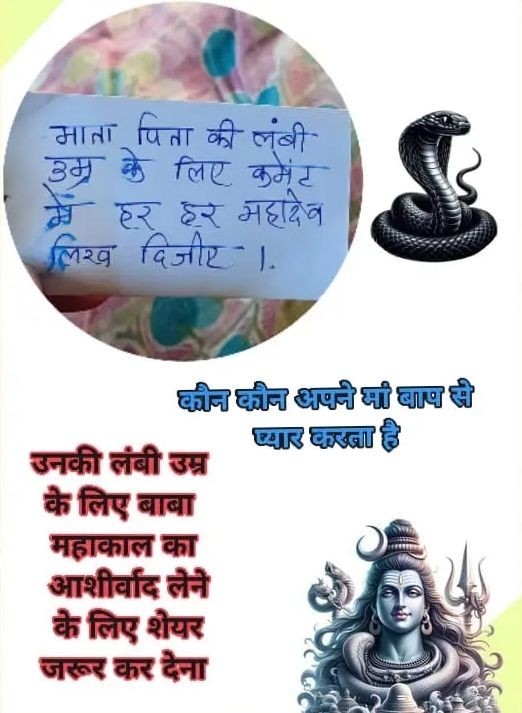 माता पिता की लंबी
उम्र के लिए कुमेंट
में हर हर महादेव
लिख दिजीए ।.
कौन कौन अपने मां बाप से
प्यार करता है
उनकी लंबी उम्र
के लिए बाबा
महाकाल का
आशीर्वाद लेने
के लिए शेयर
जरूर कर देना